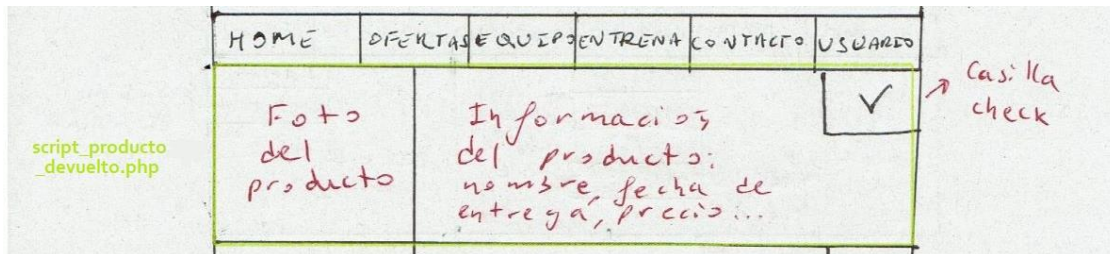 HOME OFERTAS EQUIPO ENTRENA CONTACTO USUARIO
script_producto
_devuelto.php
Foto
del
producto
Información
del producto:
nombre, fecha de
entrega, precio...
Casilla
check